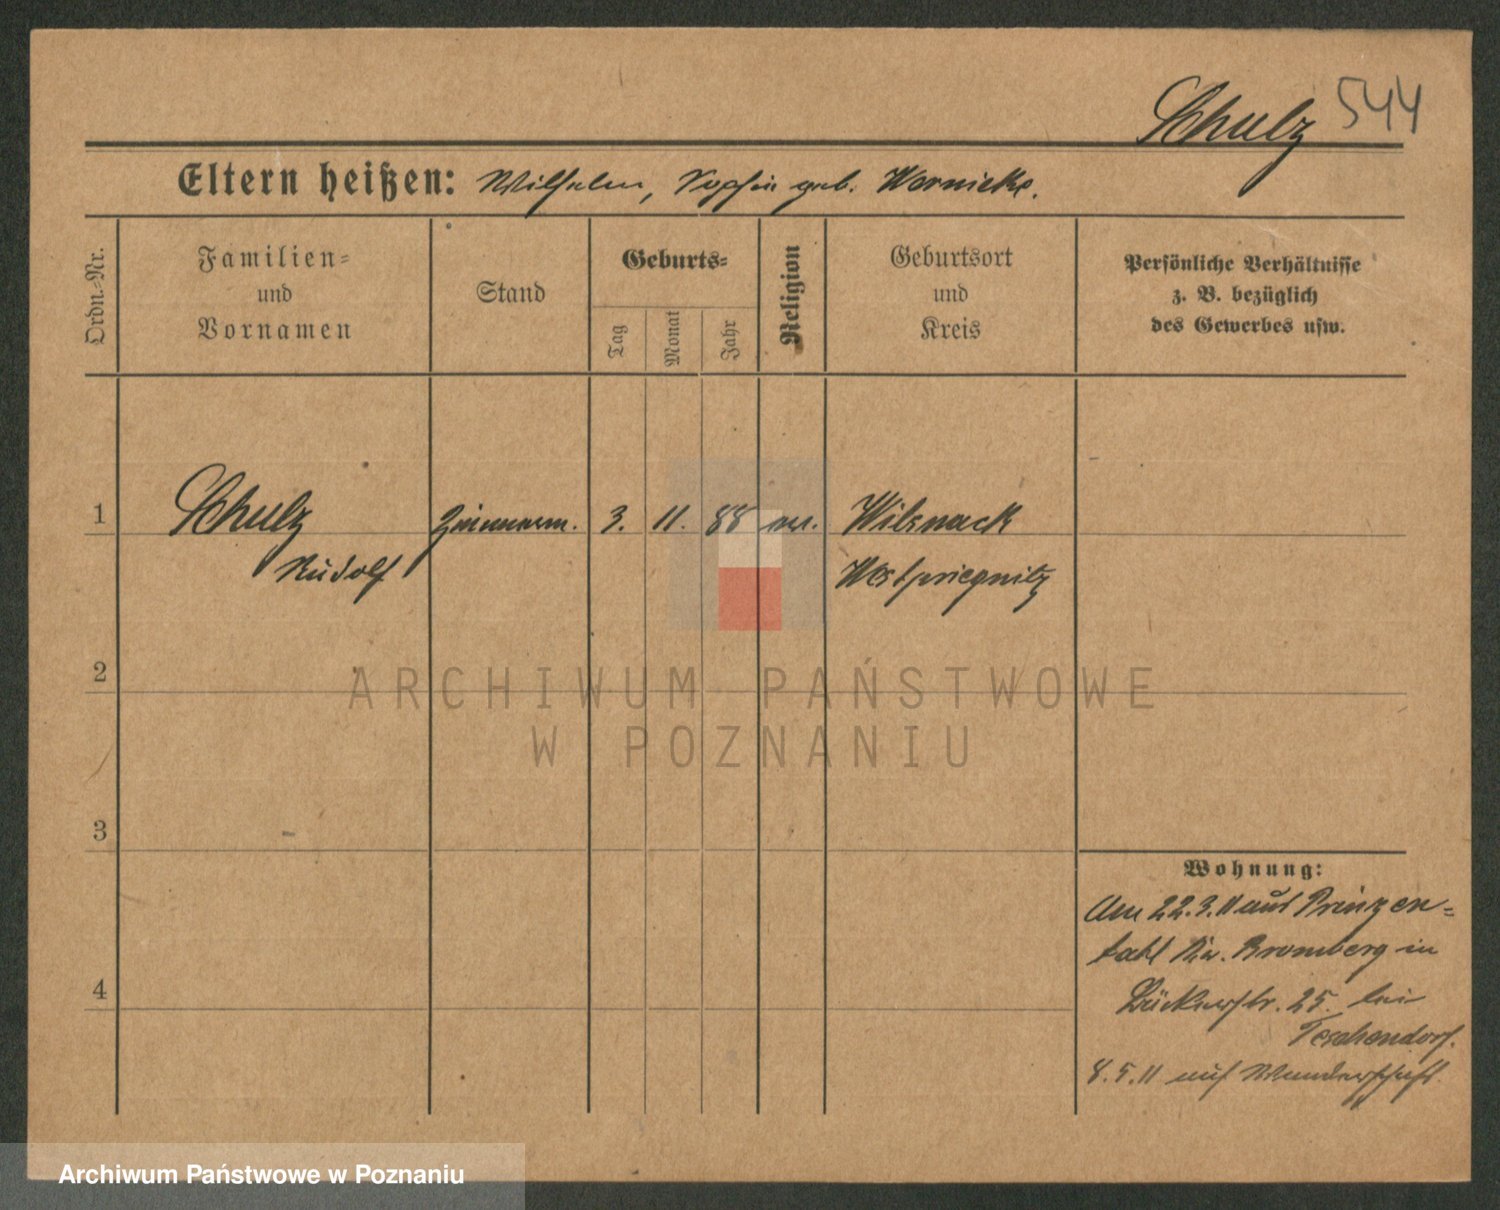 Schulz 544
Eltern heißen: Wilhelm, Sophie geb. Wernicke.
Ordn.-Nr.
Familien- und Vornamen
Stand
Geburts-
Tag
Monat
Jahr
Religion
Geburtsort und Kreis
Persönliche Verhältnisse
z. B. bezüglich
des Gewerbes usw.
1 Schulz Zimmerm. 3. 11. 88 ev. Wilsnack
Rudolf Westpriegnitz
2
ARCHIWUM PAŃSTWOWE
W POZNANIU
3
Wohnung:
Am 22.3.11 aus Prinzen-
tahl Kr. Bromberg in
25. bei
Teschendorf.
8.5.11 auf Wanderschaft
4
Archiwum Państwowe w Poznaniu